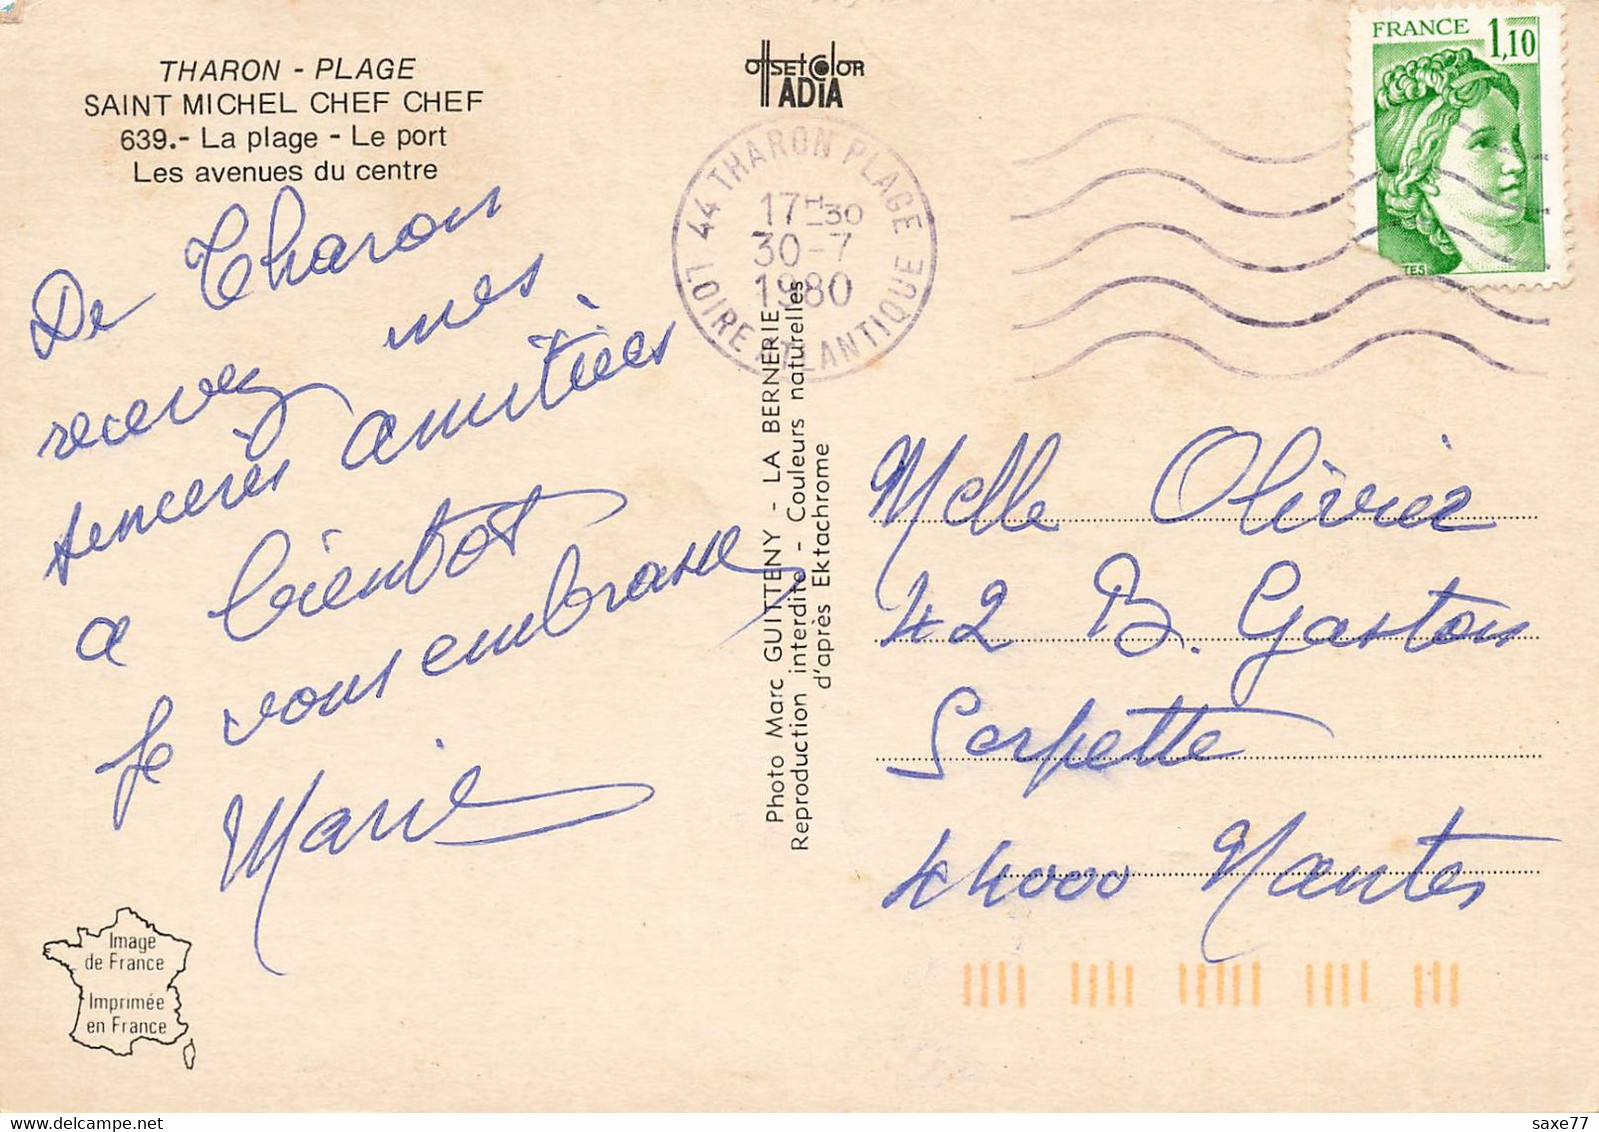 THARON - PLAGE
SAINT MICHEL CHEF CHEF
639.- La plage - Le port
Les avenues du centre
OffsetColor
ADIA
FRANCE 1,10
44 THARON PLAGE
17H30
30-7
1980
LOIRE ATLANTIQUE
De Tharon
recevez mes
senceres amitiées
a bientot
je vous embrasse
Marie
Photo Marc GUITTENY - LA BERNERIE
Reproduction interdite - Couleurs naturelles
d'après Ektachrome
Melle Olivier
42 B. Gaston
Serpette
44000 Nantes
Image
de France
Imprimée
en France
saxe77